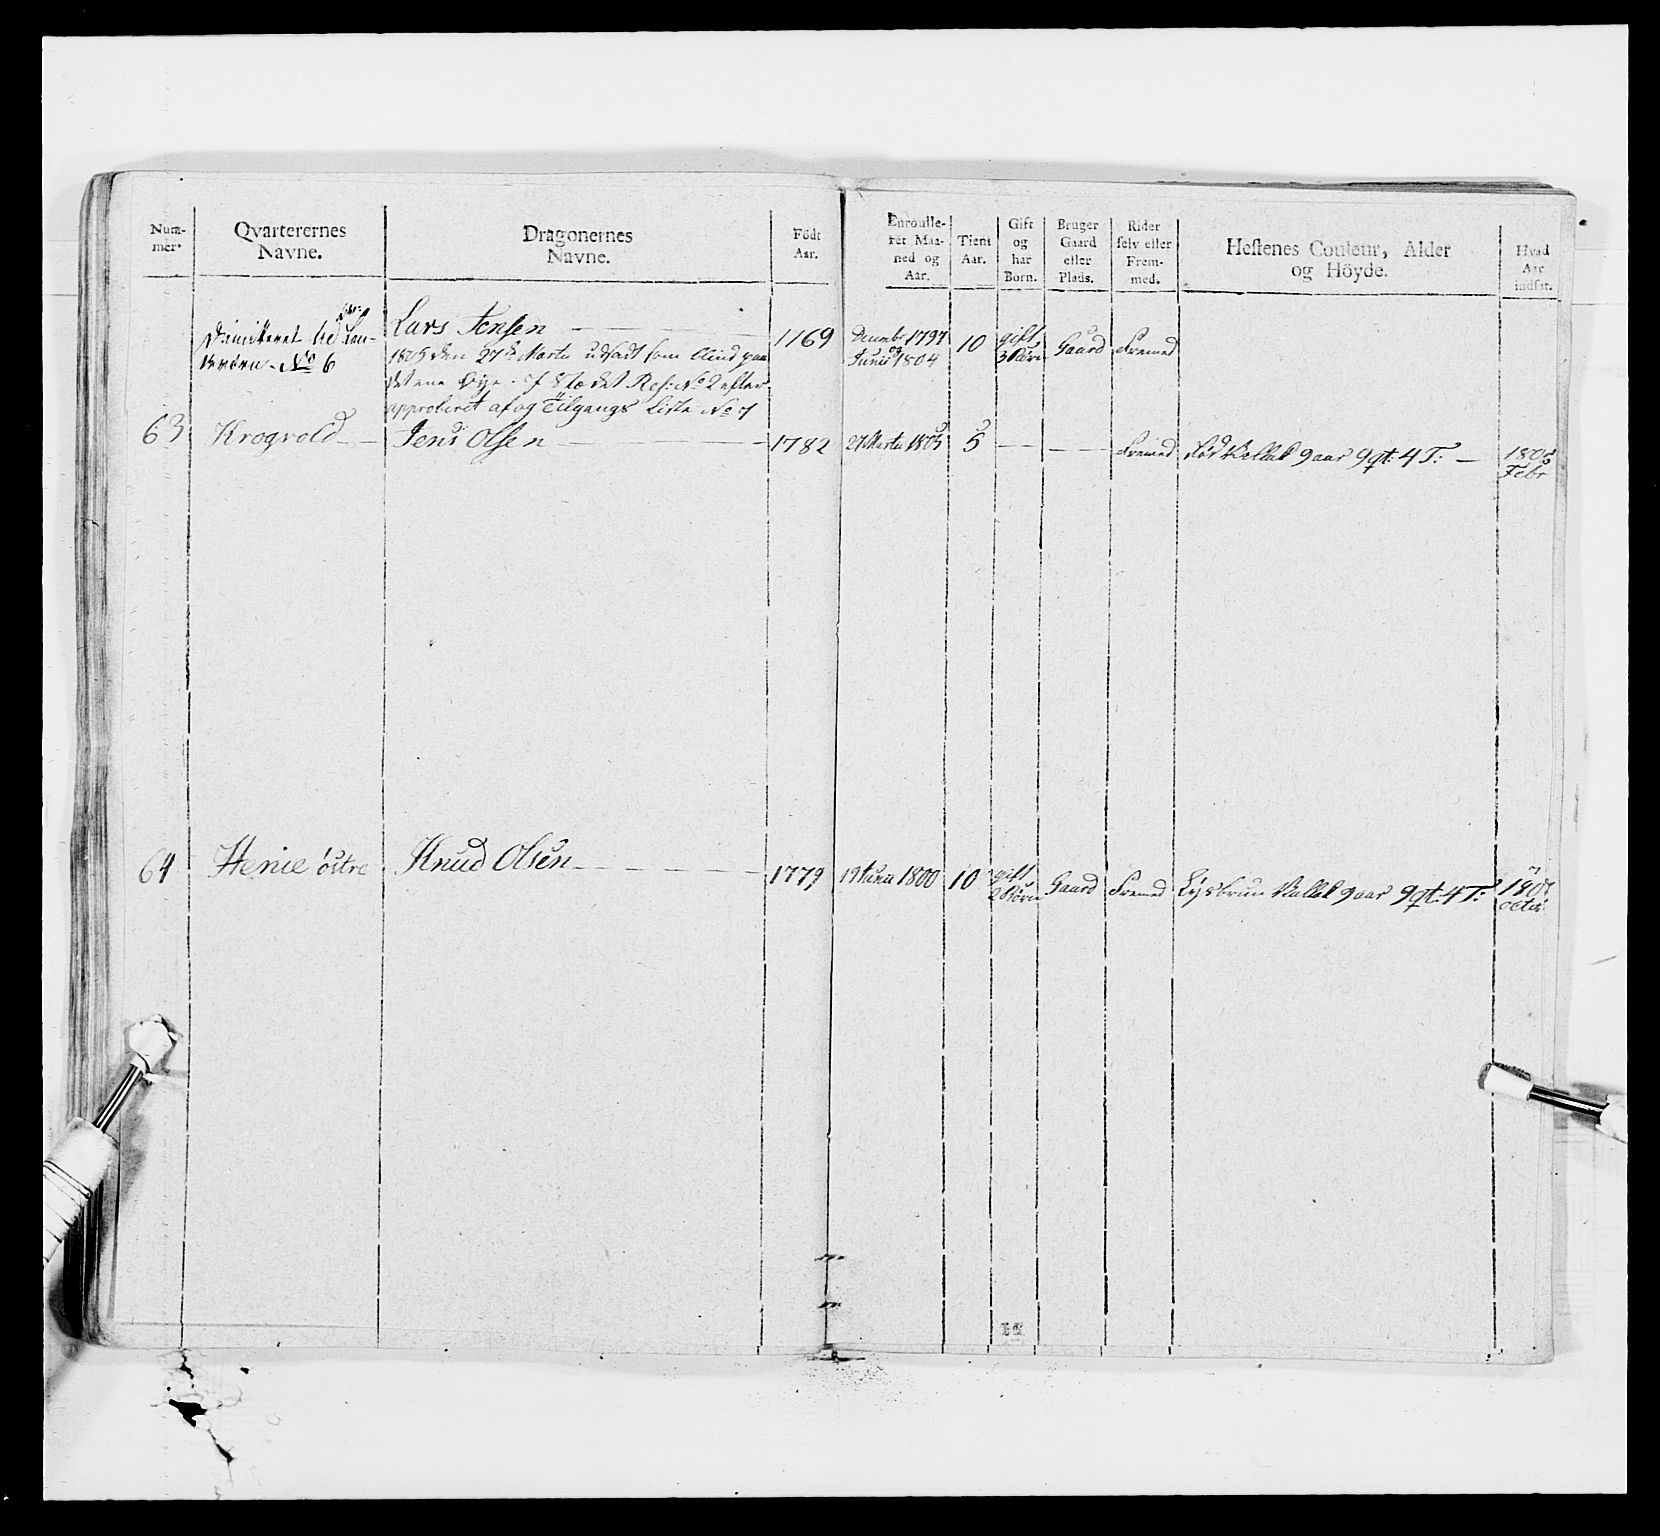 Num-
mer.
Qvarterernes
Navne.
Dragonernes
Navne.
Födt
Aar.
Enroulle-
ret Maa-
ned og
Aar.
Tient
Aar.
Gift
og
har
Born.
Bruger
Gaard
eller
Plads.
Rider
selv eller
Frem-
med.
Hestenes Couleur, Alder
og Höyde.
Hvad
Aar
indsat.
Dimitteret ved
No 6
Lars Jensen
1805 den 27de Martii udsadt som blind paa
det ene Øye. I Stædet Res: No 2 efter
approberet af og Tilgangs Liste No 7
1769
Decembr 1797
og
Junii 1804
10
gift
3 Børn
Gaard
Fremed
63
Krogvold
Jens Olsen
1782
27 Martii 1805
5
Fremed
Rød Vallak 9 aar 9qt: 4T:
Febr
64
Henie østre
Knud Olsen
1779
19 Junii 1800
10
gift
2 Børn
Gaard
Fremed
Lysbrun Vallak 9 aar 9qt: 4T:
octbr